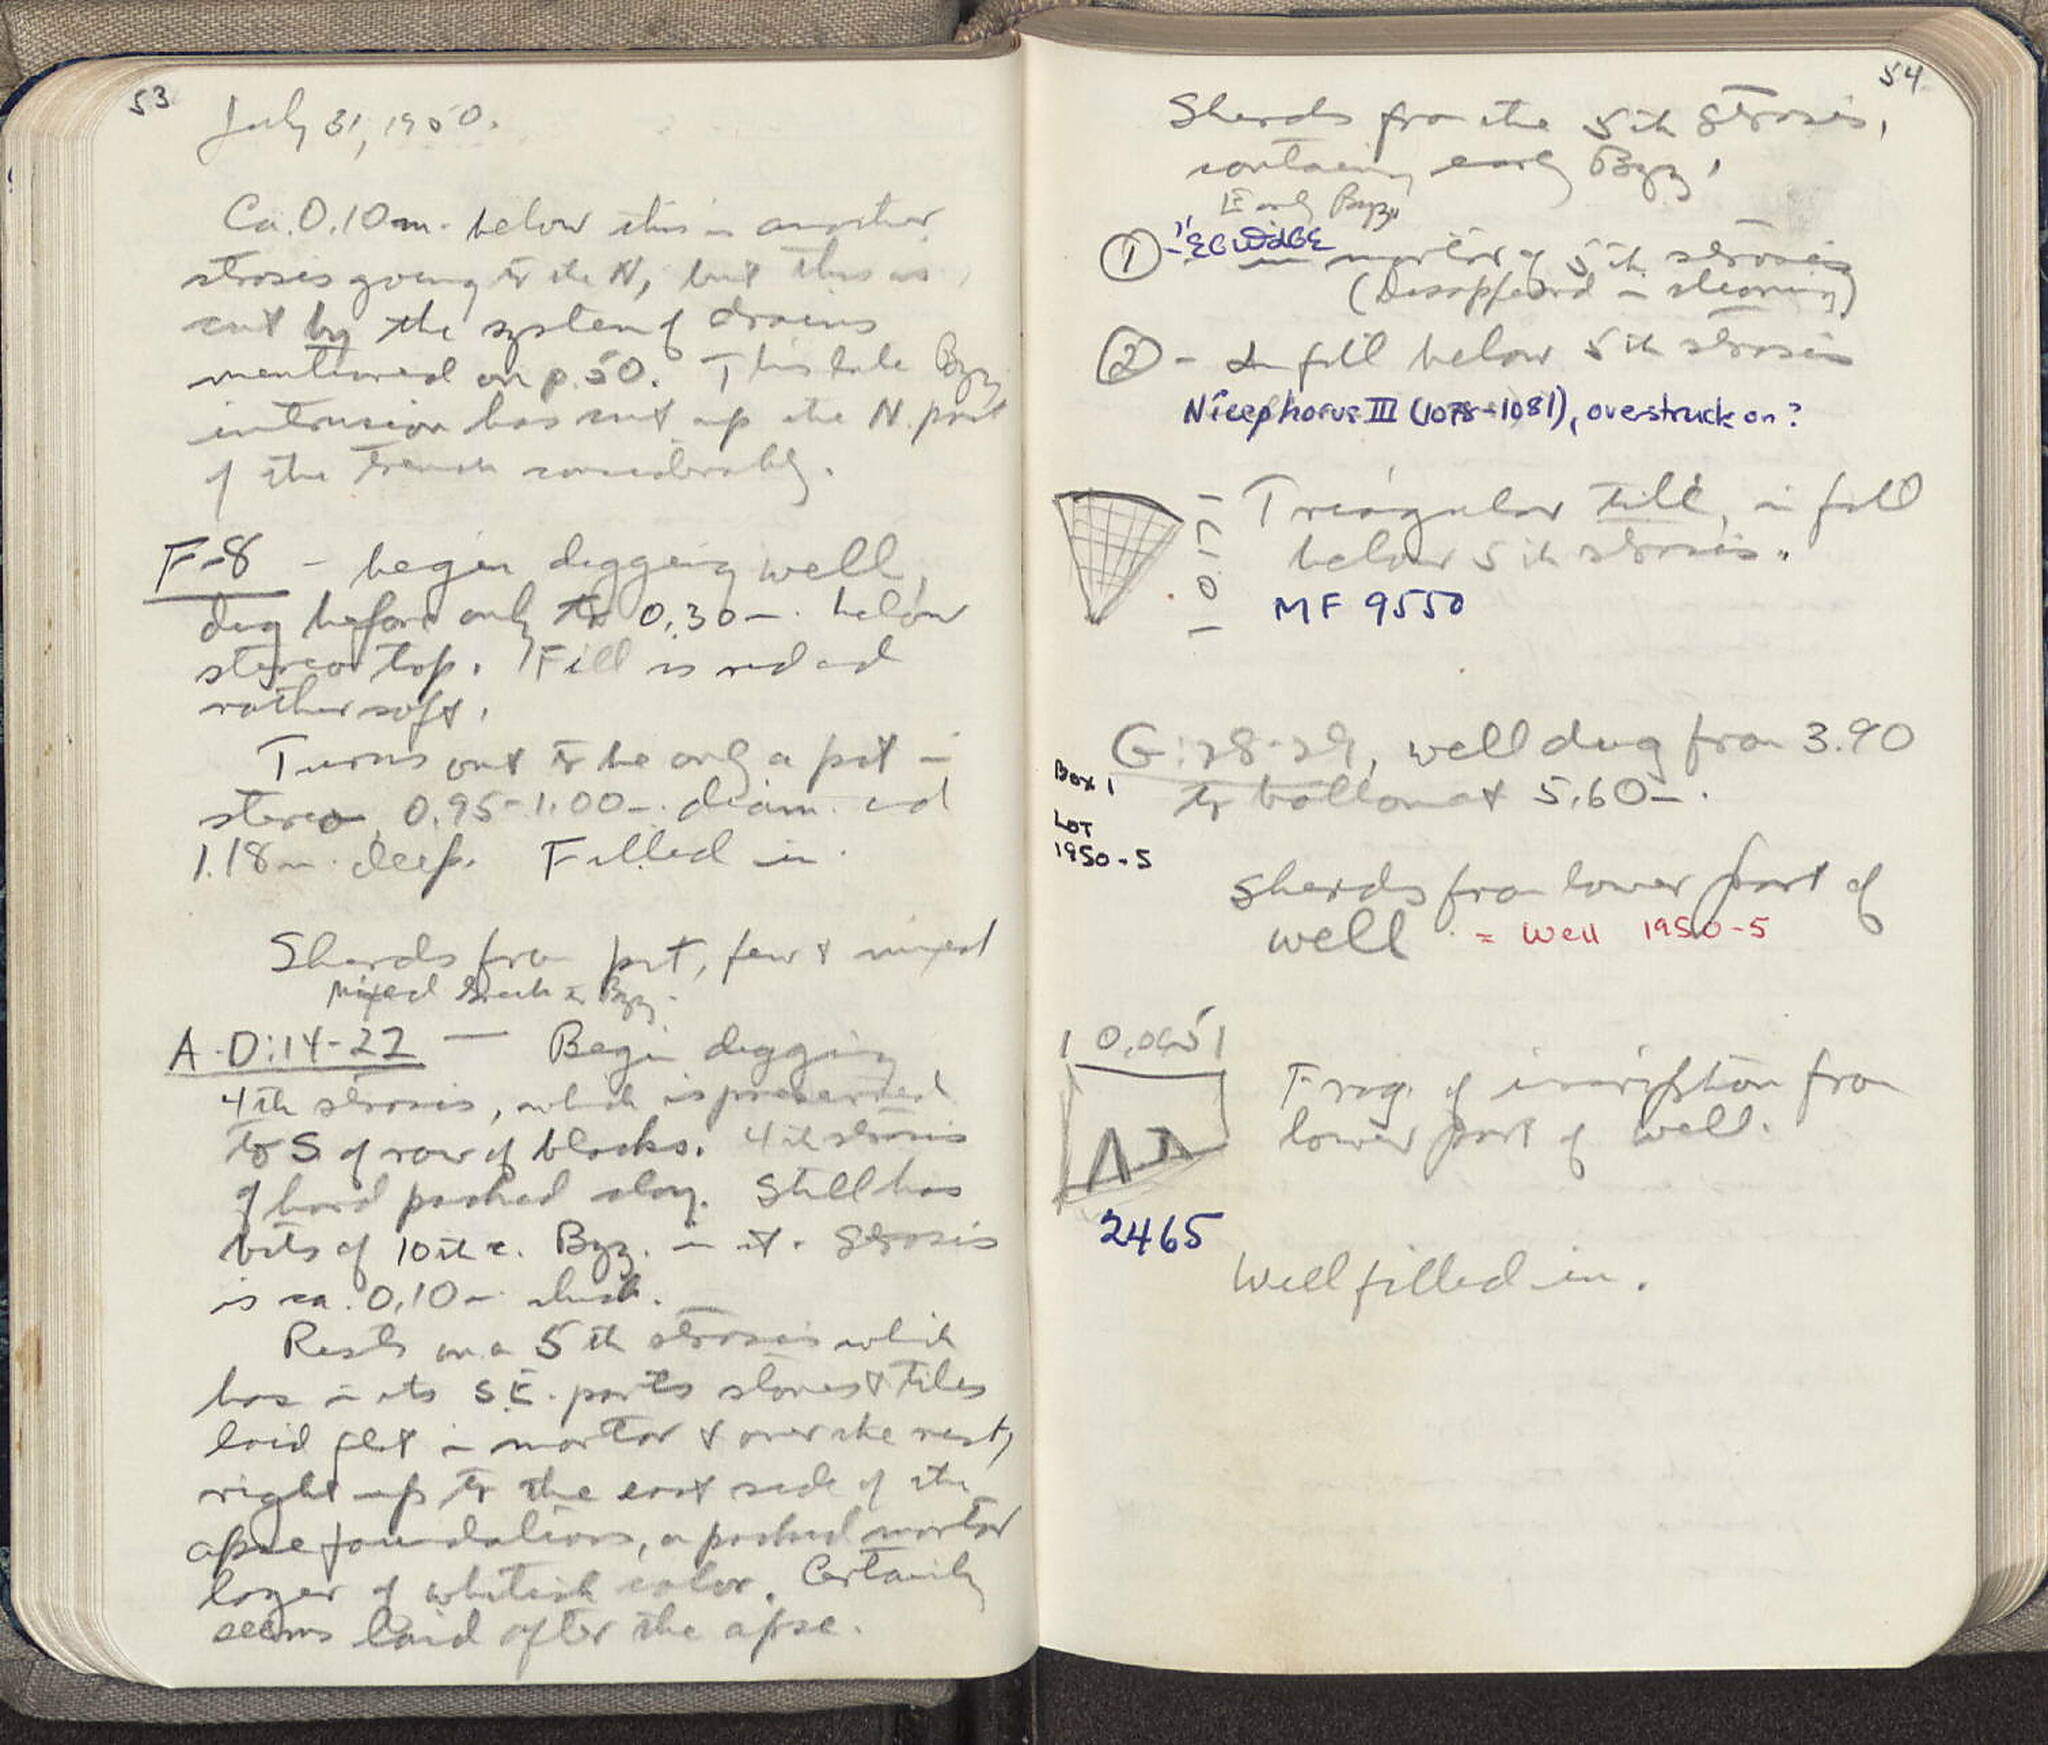 53
July 31, 1950.
Ca. 0.10m. below this is another
strosis going to the N, but this is
cut by the system of drains
mentioned on p. 50. This late Byz
intrusion has cut up the N. part
of the trench considerably.
F-8 - begin digging well,
dug before only to 0.30m. below
stereo top. Fill is red and
rather soft.
Turns out to be only a pit in
stereo, 0.95-1.00m. diam. and
1.18m. deep. Filled in.
Sherds from pit, few & mixed
Mixed Greek to Byz.
A-D:14-22 — Begin digging
4th strosis, which is preserved
to S of row of blocks. 4th strosis
of hard packed clay. Still has
bits of 10th c. Byz. in it. Strosis
is ca. 0.10m. thick.
Rests on a 5th strosis which
has in its S.E. parts stones & tiles
laid flat in mortar & over the rest,
right up to the east side of the
apse foundations, a packed mortar
layer of whitish color. Certainly
seems laid after the apse.
54
Sherds from the 5th strosis,
containing early Byz.
Early Byz.
① - in mortar of 5th strosis
(Disappeared in cleaning)
② - In fill below 5th strosis
Nicephorus III (1078-1081), overstruck on?
Triangular tile, in fill
below 5th strosis.
0.17
MF 9550
G:28-29, well dug from 3.90
to bottom at 5.60m.
Box 1
LOT
1950-5
Sherds from lower part of
well = Well 1950-5
Frag. of inscription from
lower part of well.
2465
Well filled in.